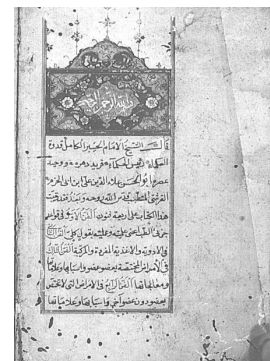 بسم الله الرحمن الرحيم
قال الشيخ الامام الحبر الكامل قدوة
العلماء رئيس الحكماء فريد دهره ووحيد
عصره ابو الحسن علاء الدين علي بن ابي الحزم
القرشي المتطبب قدس الله روحه ونور ضريحه قد رتبت
هذا الكتاب على اربعة فنون الفن الاول في قواعد
جزئي الطب اعني علمية وعملية بقول كلي الفن الثاني
في الادوية والاغذية المفردة والمركبة الفن الثالث
في الامراض المختصة بعضو عضو واسبابها وعلاماتها
ومعالجاتها الفن الرابع في الامراض التي لا تختص
بعضو دون عضو آخر واسبابها وعلاماتها